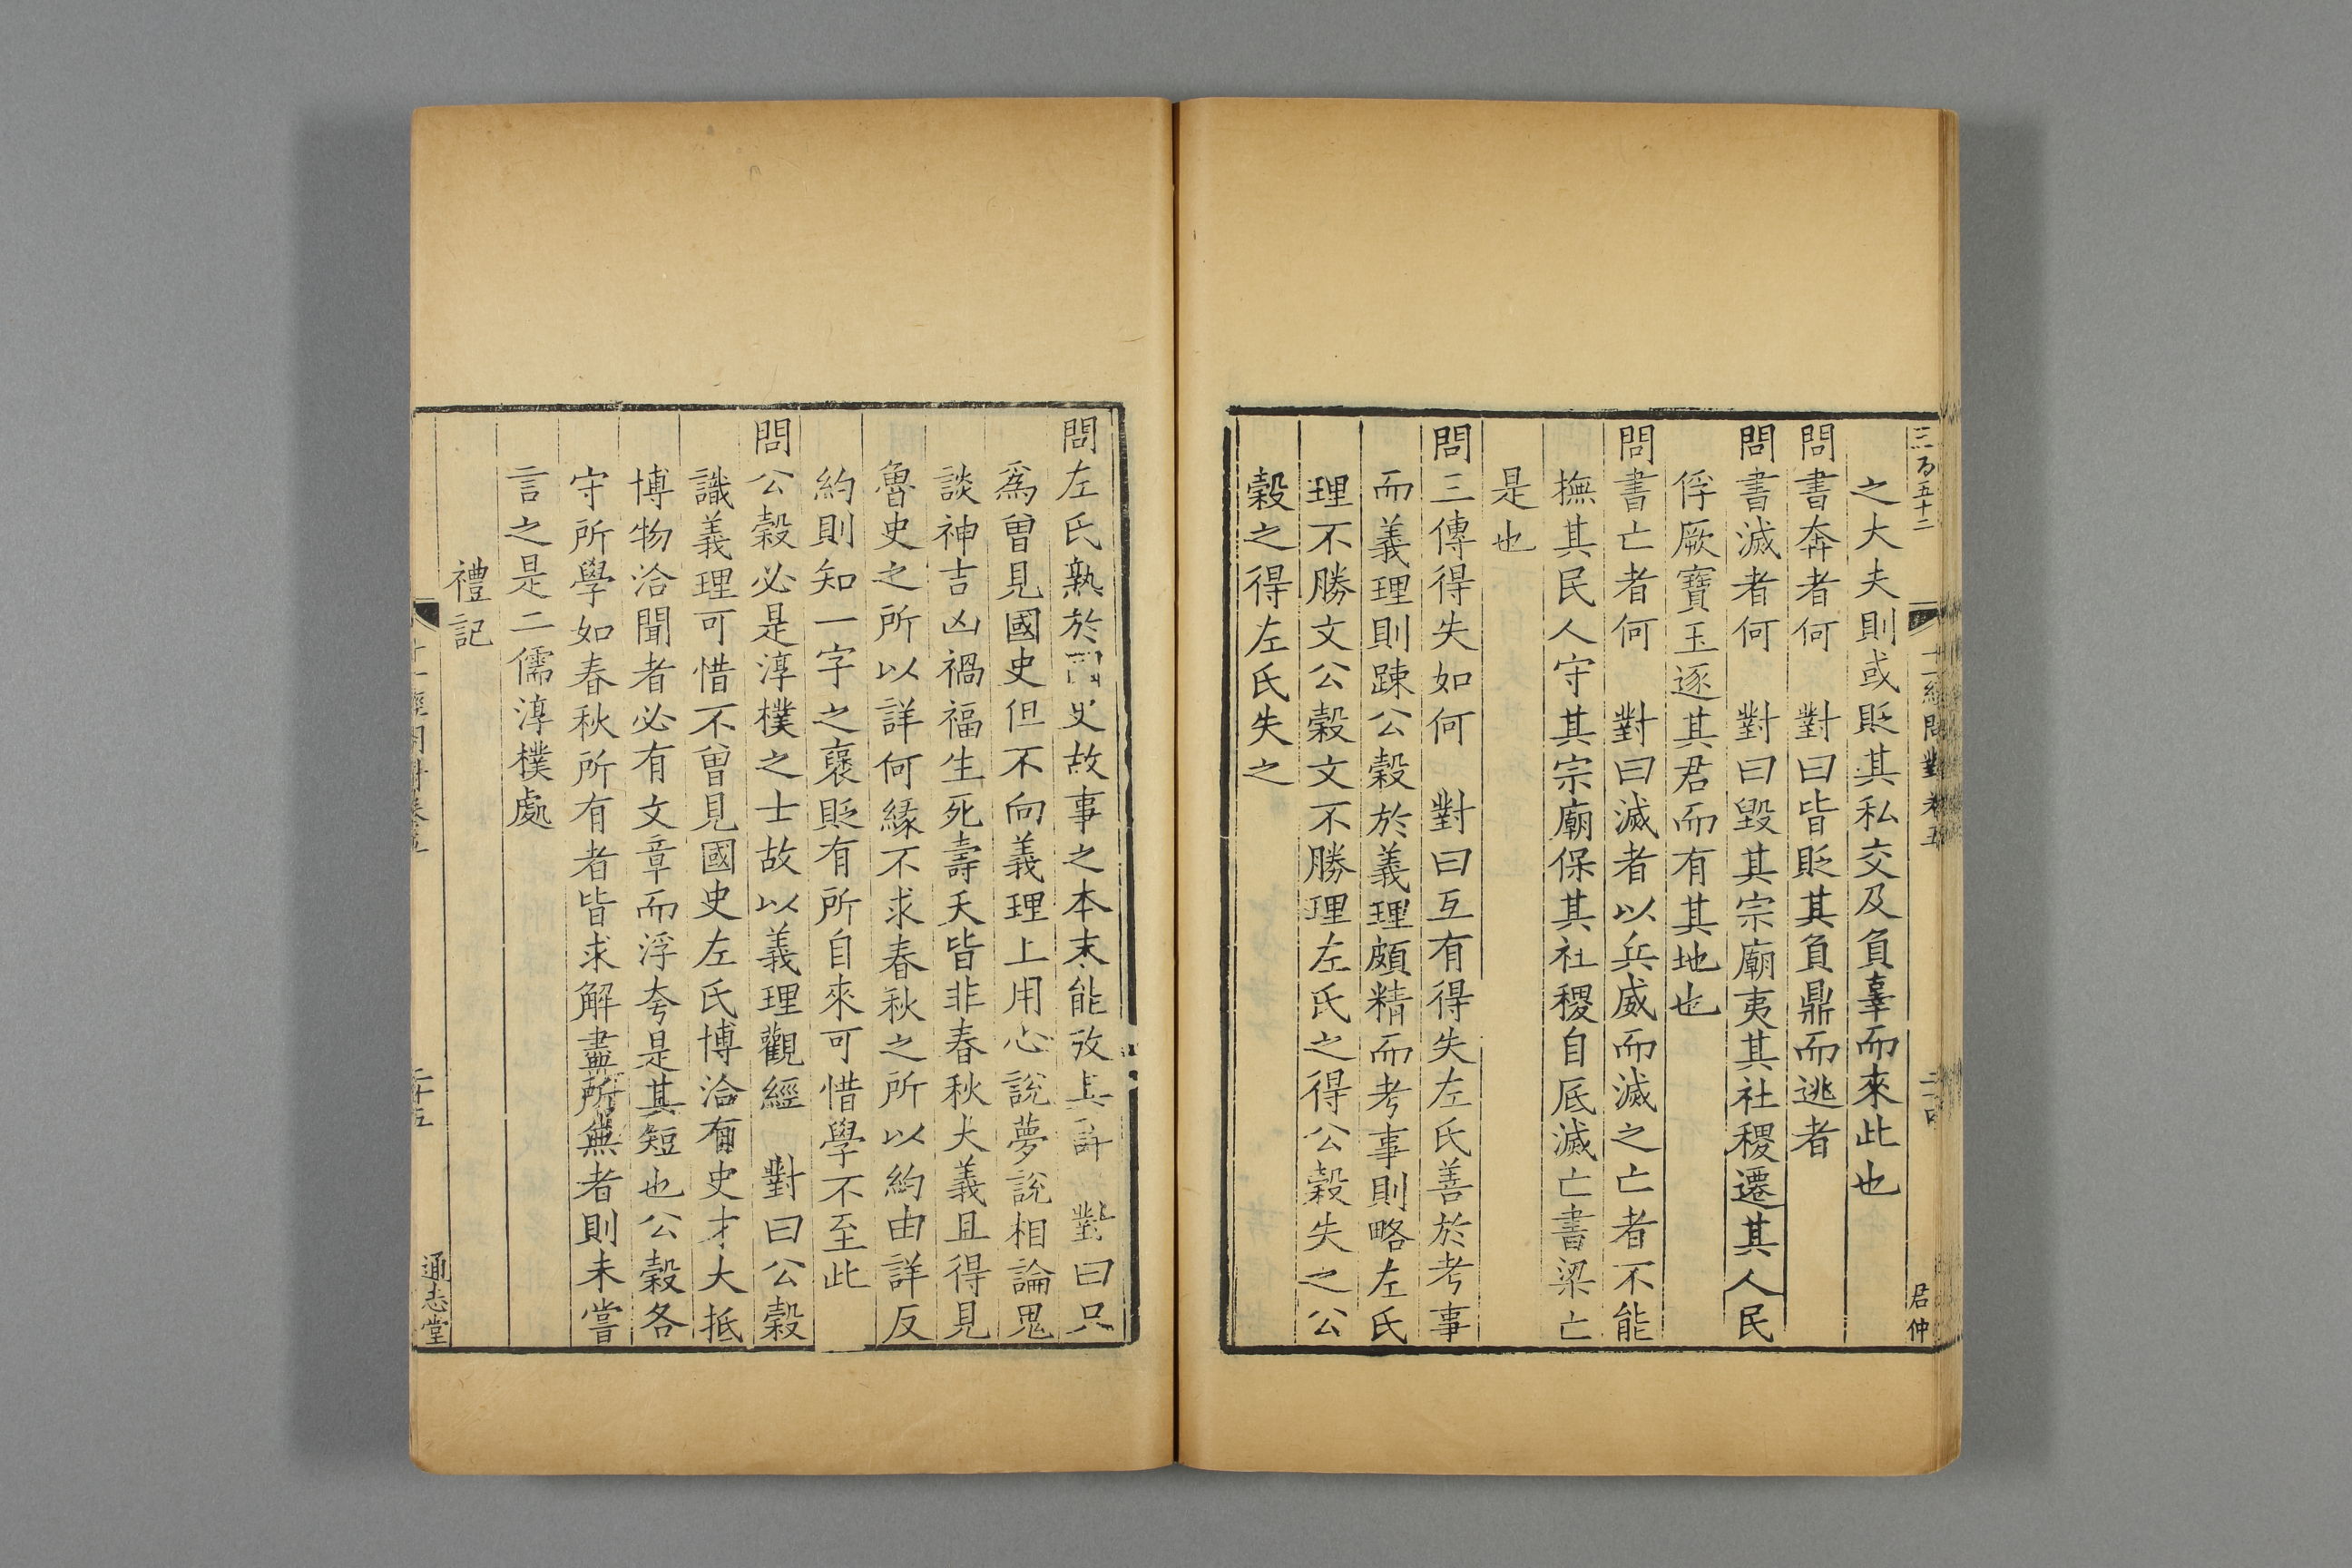 三百五十二
十一經問對卷五
君仲
之大夫則或貶其私交及負辠而來此也
問書奔者何　對曰皆貶其負鼎而逃者
問書滅者何　對曰毀其宗廟夷其社稷遷其人民
俘厥寶玉逐其君而有其地也
問書亡者何　對曰滅者以兵威而滅之亡者不能
撫其民人守其宗廟保其社稷自底滅亡書梁亡
是也
問三傳得失如何　對曰互有得失左氏善於考事
而義理則踈公穀於義理頗精而考事則略左氏
理不勝文公穀文不勝理左氏之得公穀失之公
穀之得左氏失之
問左氏熟於國史故事之本末能攷其詳　對曰只
爲曾見國史但不向義理上用心說夢說相論鬼
談神吉凶禍福生死壽夭皆非春秋大義且得見
魯史之所以詳何緣不求春秋之所以約由詳反
約則知一字之褒貶有所自來可惜學不至此
問公穀必是淳樸之士故以義理觀經　對曰公穀
識義理可惜不曾見國史左氏博洽有史才大抵
博物洽聞者必有文章而浮夸是其短也公穀各
守所學如春秋所有者皆求解盡所無者則未嘗
言之是二儒淳樸處
禮記
通志堂